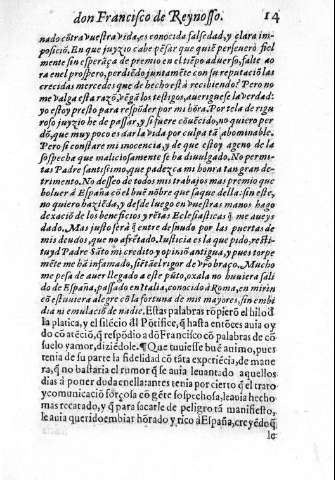 don Francisco de Reynosso. 14
nado cõtra vuestra vida, es conocida falsedad, y clara im-
posiciõ. En que juyzio cabe pẽsar que quiẽ perseuerò fiel
mente sin esperãça de premio en el tiẽpo aduerso, falte ao
ra en el prospero, perdiẽdo juntamẽte con su reputaciõ las
crecidas mercedes que de hecho està recibiendo? Pero no
me valga esta razõ, vẽgã los testigos, aueriguese la verdad:
yo estoy presto para respõder por mi hõra. Por tela de rigu
roso juyzio he de passar, y si fuere cõuẽcido, no quiero per
dõ, que muy poco es dar la vida por culpa tã abominable.
Pero si constare mi inocencia, y de que estoy ageno de la
sospecha que maliciosamente se ha diuulgado. No permi-
tas Padre santissimo, que padezca mi honra tan gran de-
trimento. No desseo de todos mis trabajos mas premio que
boluer à España cõ el buẽ nõbre que saque della: sin este,
no quiero haziẽda, y desde luego en vuestras manos hago
dexaciõ de los beneficios y rẽtas Eclesiasticas q̃ me aueys
dado. Mas justo serà q̃ entre desnudo por las puertas de
mis deudos, que no afrẽtado. Iusticia es la que pido, resti-
tuyd Padre Sãto mi credito y opiniõ antigua, y pues torpe
mẽte me hã infamado, siẽtãe l rigor de vr̃o braço. Mucho
me pesa de auer llegado a este pũto, oxala no huuiera sali-
do de España, passado en Italia, conocido à Roma, en mi riñ
cõ estuuiera alegre cõ la fortuna de mis mayores, sin embi
dia ni emulaciõ de nadie. Estas palabras rõpierõ el hilo d̃
la platica, y el silẽcio dl Põtifice, q̃ hasta entõces auia oy
do cõ atẽciõ, q̃ respõdio a dõ Francisco cõ palabras de cõ
suelo y amor, diziẽdole. ¶ Que tuuiesse buẽ animo, pues
tenia de su parte la fidelidad cõ tãta expriẽcia, de mane
ra, q̃ no bastaria el rumor q̃ se auia leuantado aquellos
dias à poner duda en ella: antes tenia por cierto q̃ el trato
y comunicaciõ forçosa cõ gẽte sospechosa, le auia hecho
mas recatado, y q̃ para sacarle de peligro tã manifiesto,
le auia querido embiar hõrado y rico à España, creyẽdo q̃
le